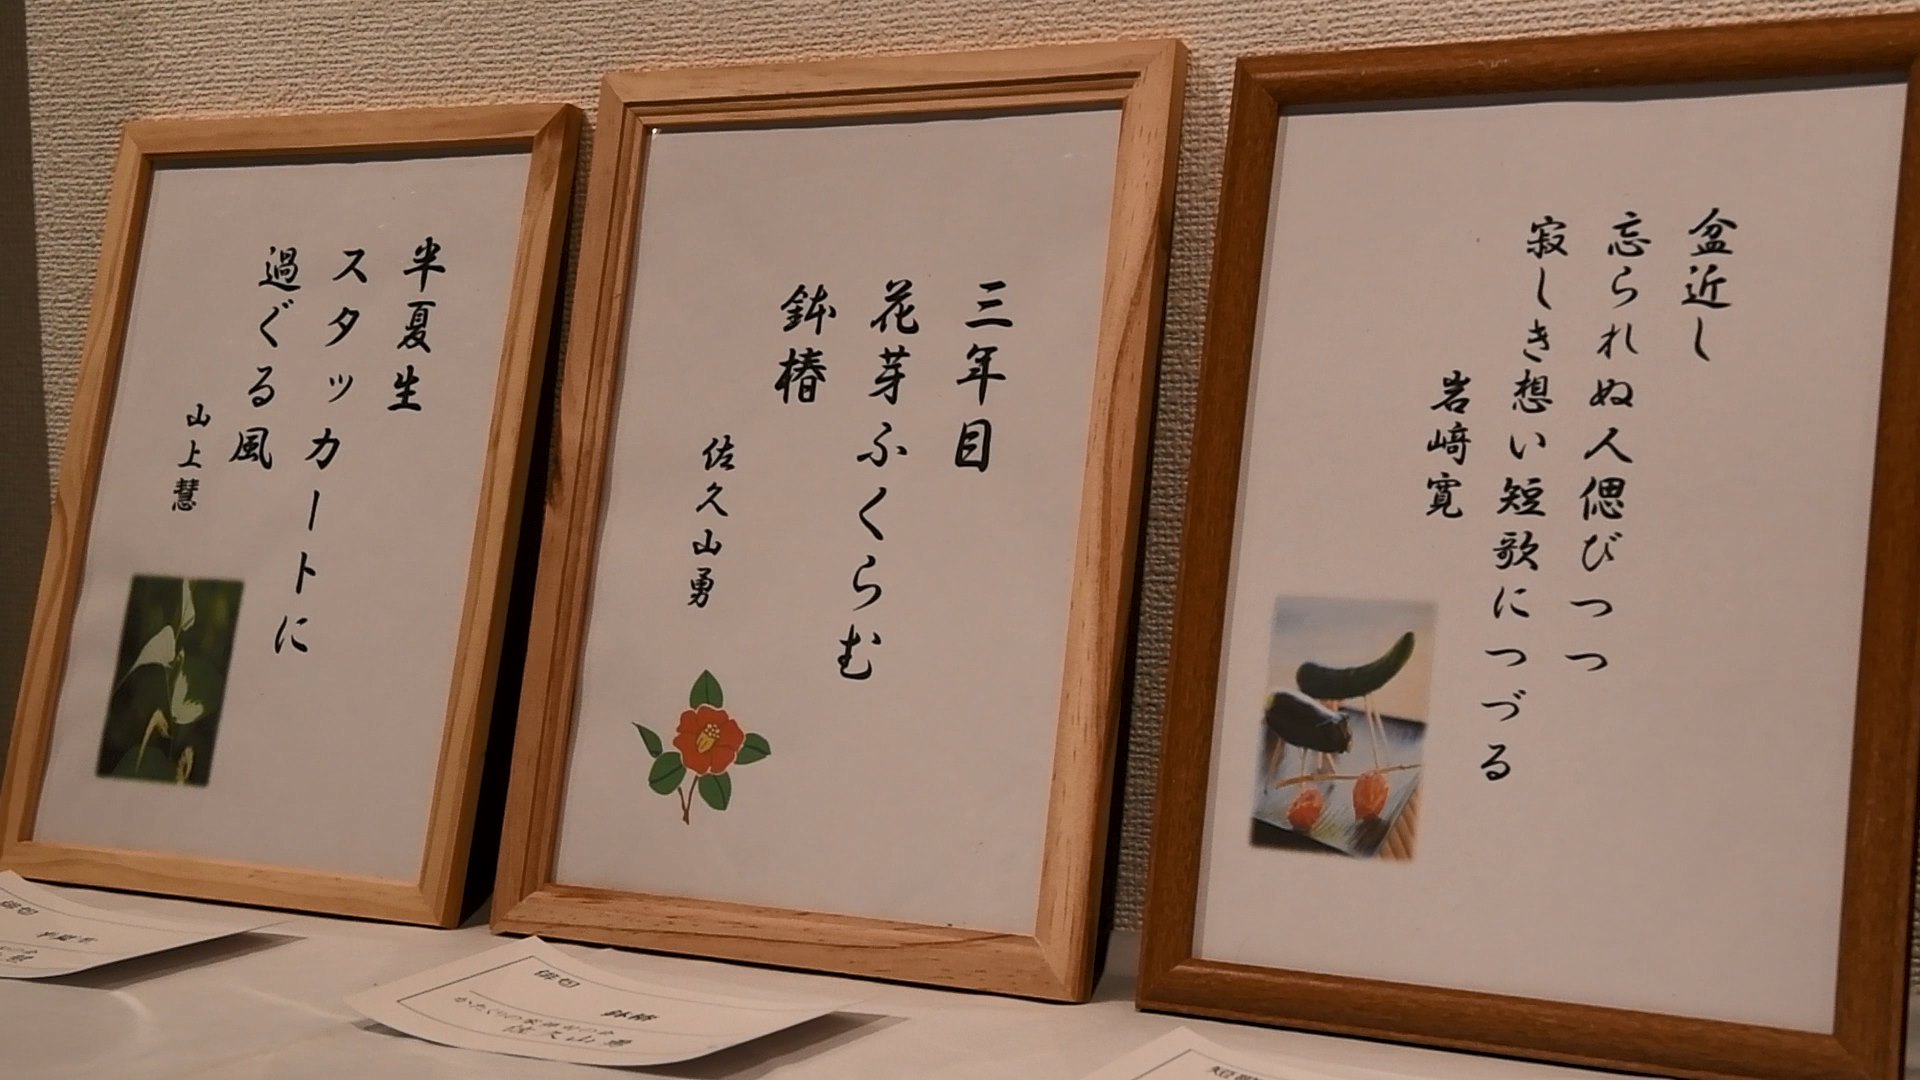 盆近し
忘られぬ人偲びつつ
寂しき想い短歌につづる
岩﨑寛
三年目
花芽ふくらむ
鉢椿
佐久山勇
半夏生
スタッカートに
過ぐる風
山上慧
俳句
鉢椿
佐久山勇
俳句
半夏生